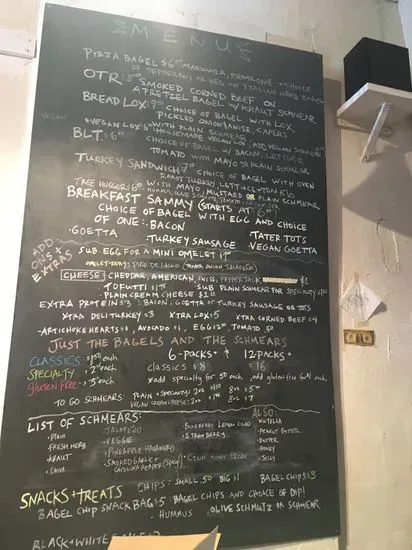 MENU
PIZZA BAGEL $6 MARINARA, PROVOLONE + CHOICE
OF PEPPERONI OR VEG ON ITALIAN HERB BAGEL
OTR: 8 SMOKED CORNED BEEF ON
A PRETZEL BAGEL W/ KRAUT SCHMEAR
BREAD LOX: 9 CHOICE OF BAGEL WITH LOX,
PICKLED ONION, CAPERS
VEGAN LOX: 6 WITH PLAIN SCHMEAR
HOUSEMADE VEGAN LOX
BLT: 6 CHOICE OF BAGEL W/ BACON, LETTUCE
TOMATO WITH MAYO OR PLAIN SCHMEAR
TURKEY SANDWICH 7 CHOICE OF BAGEL WITH OVEN
ROAST TURKEY, LETTUCE + TOMATO
WITH MAYO, MUSTARD OR PLAIN SCHMEAR
TREE HUGGER: 6
BREAKFAST SAMMY (STARTS AT 6)
CHOICE OF BAGEL WITH EGG AND CHOICE
OF ONE: · BACON
· GOETTA TURKEY SAUSAGE · TATER TOTS
· VEGAN GOETTA
ADD ONS + EXTRAS
SUB EGG FOR A MINI OMELET $1
CHEESE: CHEDDAR, AMERICAN, SWISS, PEPPERJACK $1
TOFUTTI $1 SUB PLAIN SCHMEAR FOR SPECIALTY
· PLAIN CREAM CHEESE $1
EXTRA PROTEIN $3: BACON, GOETTA OR TURKEY SAUSAGE OR TOTS
XTRA DELI TURKEY $3 XTRA LOX $5 XTRA CORNED BEEF $4
- ARTICHOKE HEARTS $1, AVOCADO $1, EGG $2, TOMATO .50
JUST THE BAGELS AND THE SCHMEARS
CLASSICS $1 each
SPECIALTY $2 each
GLUTEN FREE $5 each
6-PACKS 12 PACKS
classics $8 $16
* add specialty for .50 each, add gluten free each
TO GO SCHMEARS: PLAIN + SPECIALTY: 2oz 8oz
VEGAN CREAM CHEESE: 2oz 8oz $7
LIST OF SCHMEARS:
· PLAIN
FRESH HERB
· KRAUT
JALAPEÑO
· VEGGIE
· PINEAPPLE HABANERO
· SMOKED GARLIC +
CAROLINA REAPER (SPICY)
STRAWBERRY
· CINN HONEY
ALSO:
NUTELLA
PEANUT BUTTER
BUTTER
HONEY
JELLY
SNACKS + TREATS
CHIPS: SMALL .50 BIG $1 BAGEL CHIPS $3
BAGEL CHIP SNACK BAG $5 BAGEL CHIPS AND CHOICE OF DIP!
- HUMMUS OLIVE SCHMUTZ OR SCHMEAR
BLACK + WHITE